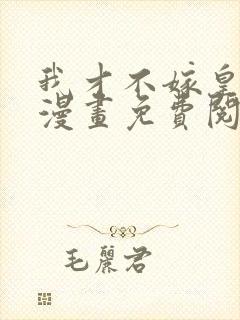 我才不嫁皇
漫畫免費閱
毛麗君